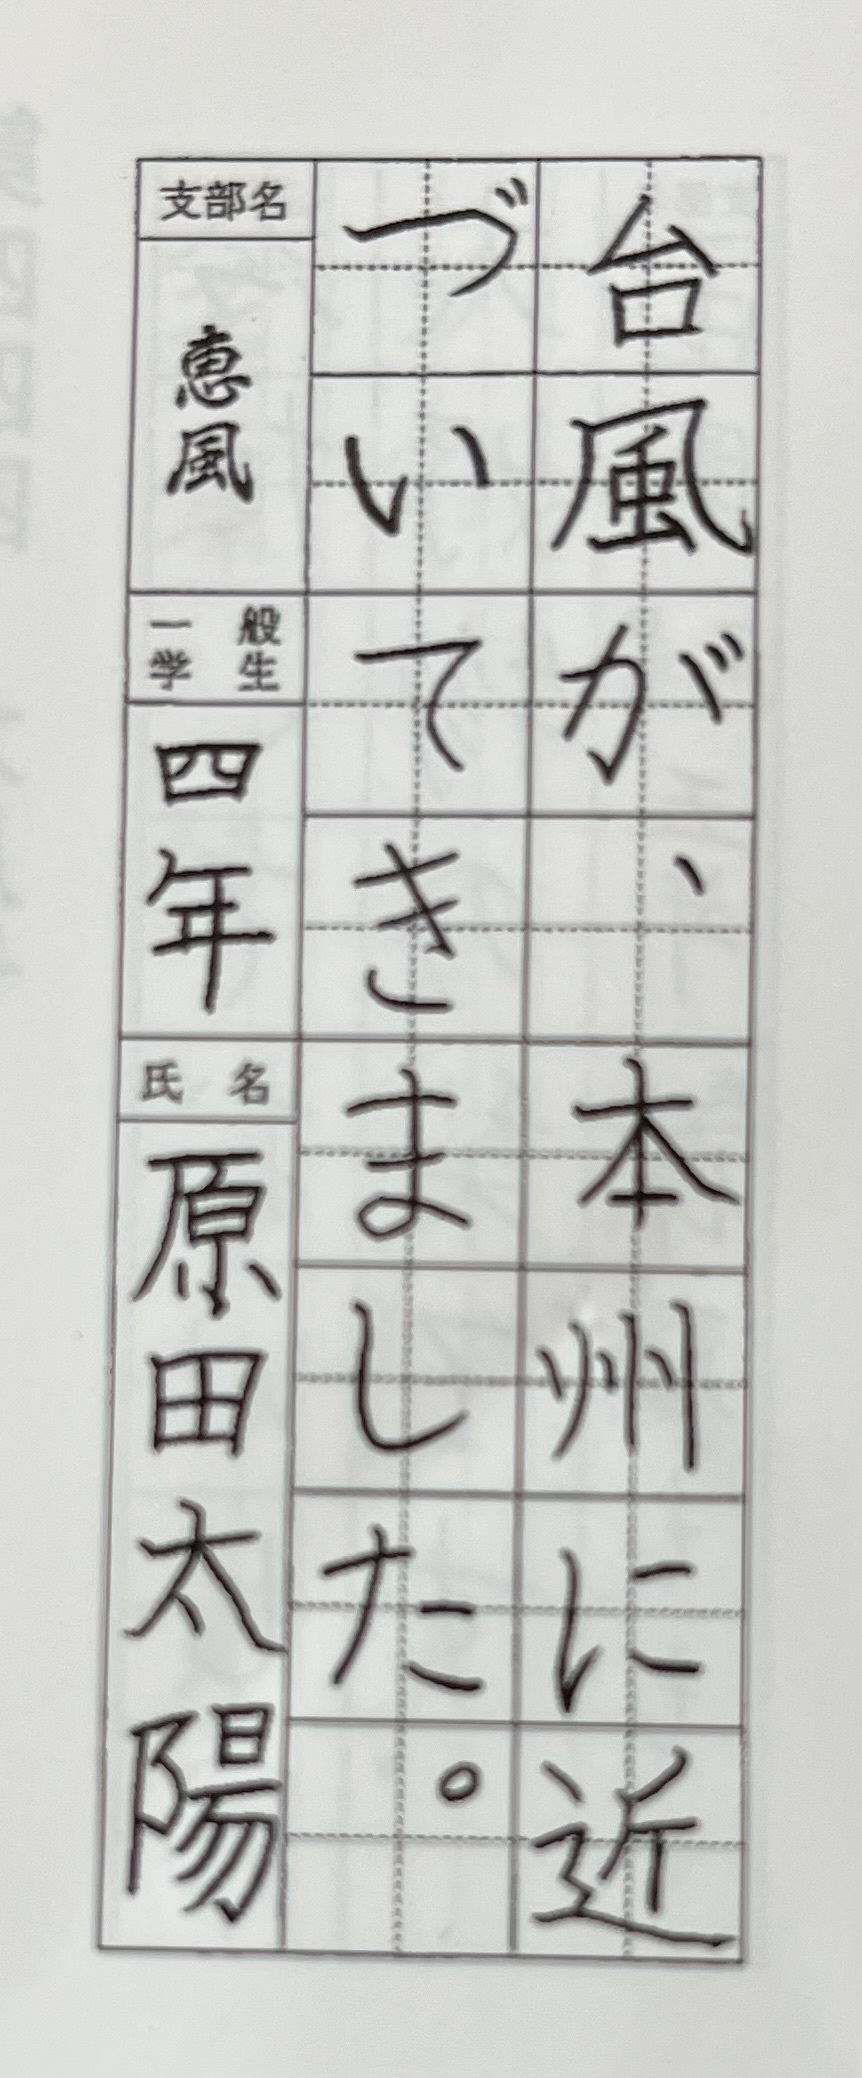 台風が、本州に近
づいてきました。
支部名
恵風
一般
学生
四年
氏名
原田太陽